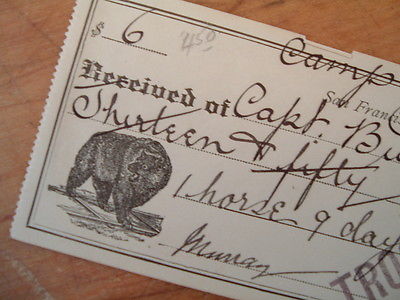 Camp
$ 6 450
San Franci
Received of Capt. Bu
Thirteen & fifty
1 horse 9 day
Murray
TRU